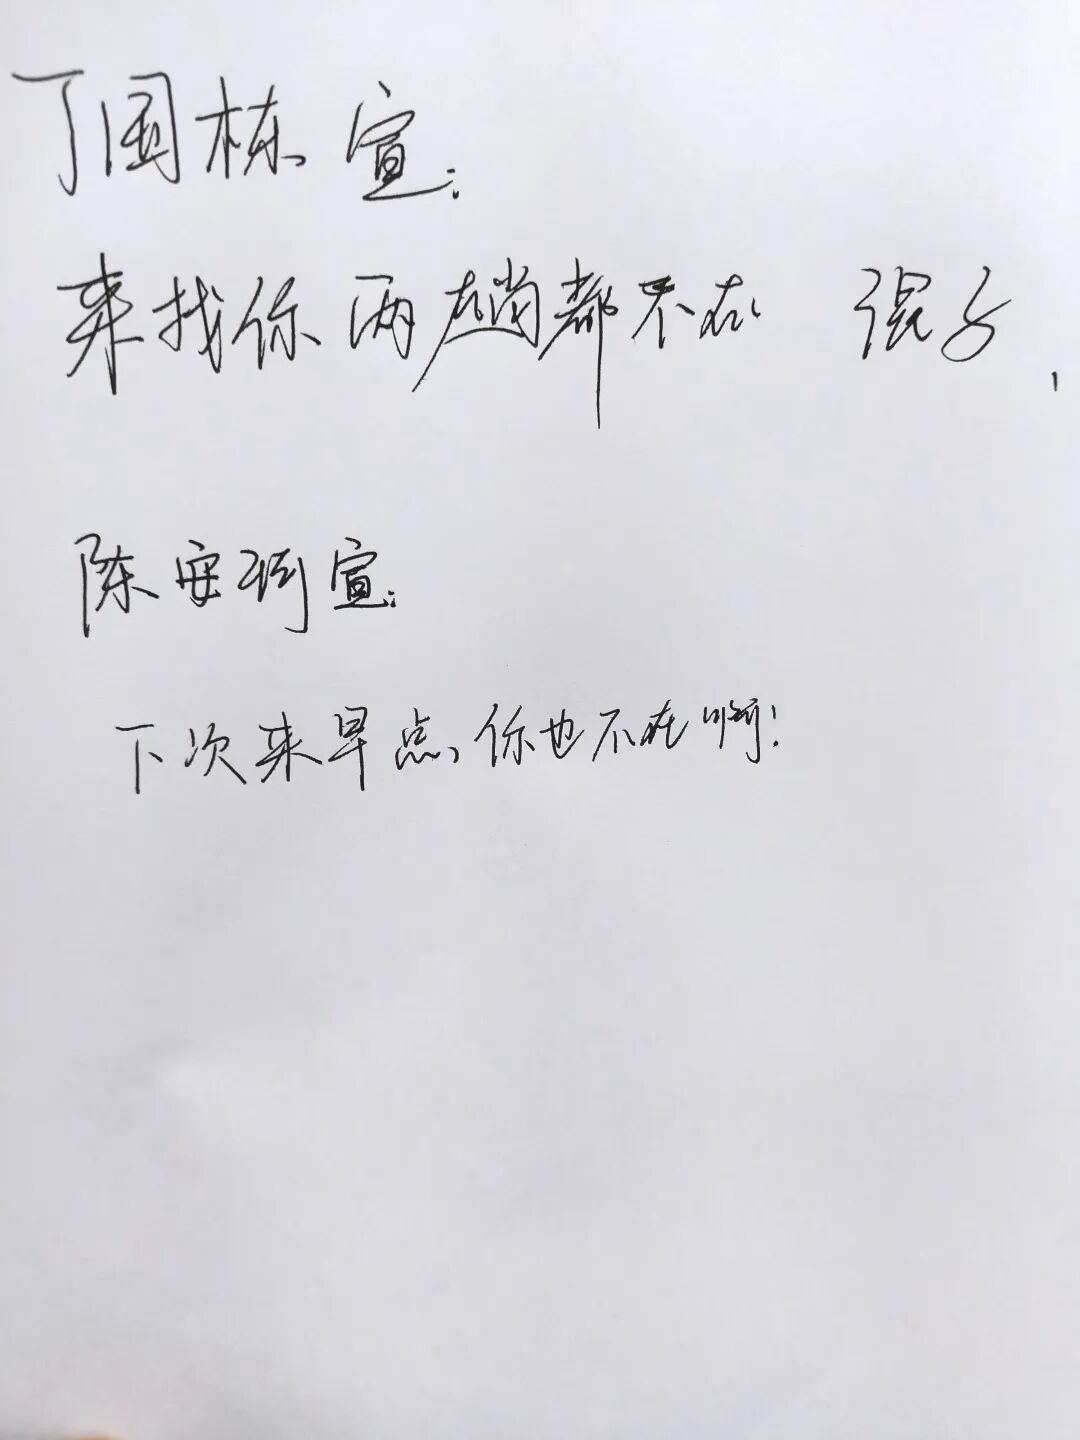 丁国栋宣：
来找你两趟都不在
陈安宣：
下次来早点、你也不在啊！